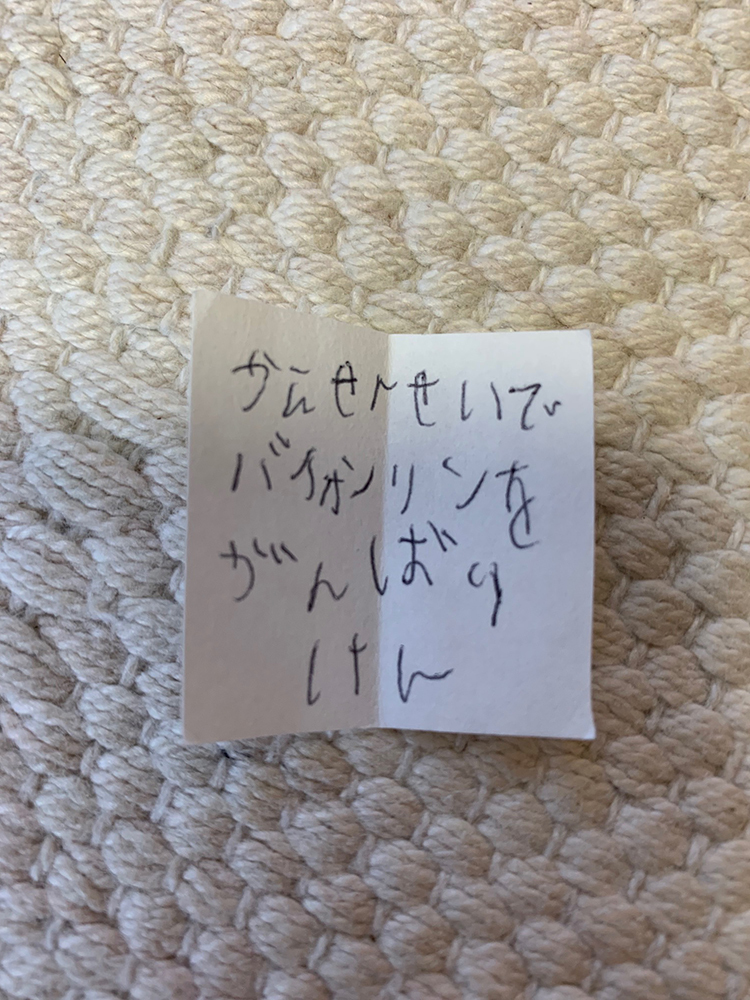 かえせんせいで
バイオンリンを
がんばり
けん